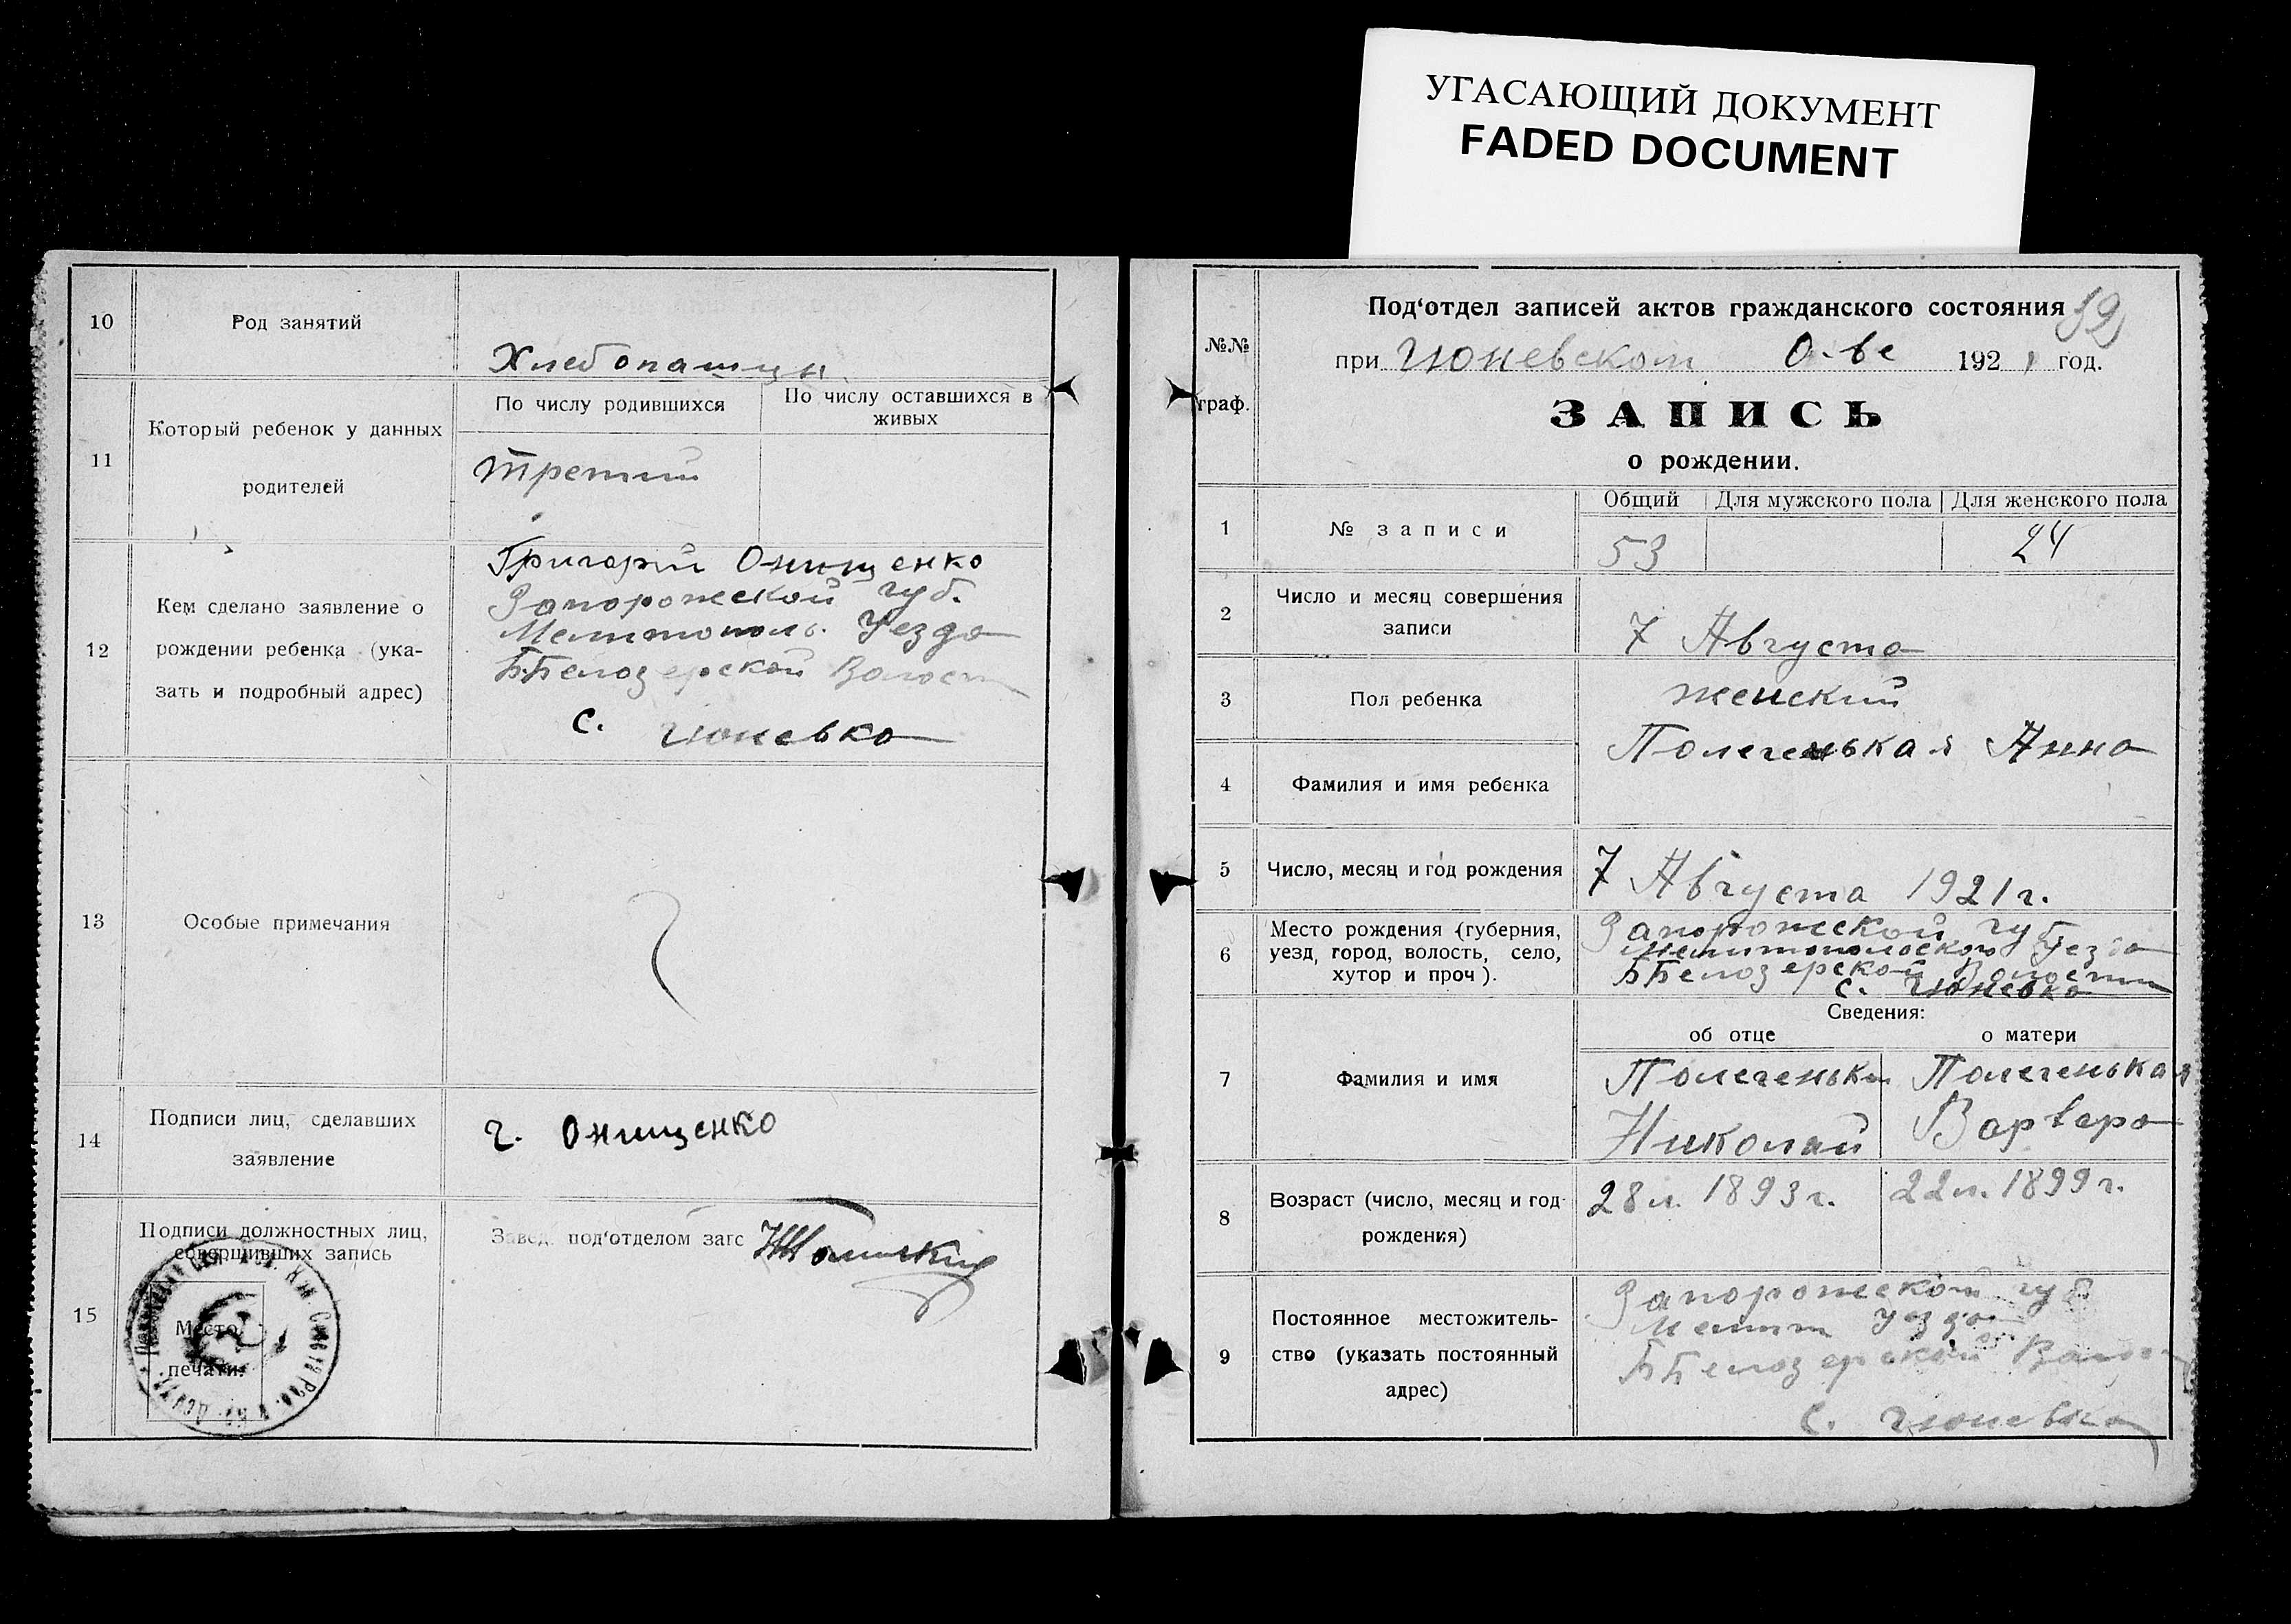 УГАСАЮЩИЙ ДОКУМЕНТ
FADED DOCUMENT
10
Род занятий
Хлебопашцы
11
Который ребенок у данных
родителей
По числу родившихся
По числу оставшихся в
живых
Третий
12
Кем сделано заявление о
рождении ребенка (ука-
зать и подробный адрес)
Григорий Онищенко
Запорожской губ.
Мелитополь. Уезда
ББелозерской Волости
с. Гюневка
13
Особые примечания
14
Подписи лиц, сделавших
заявление
Г. Онищенко
15
Подписи должностных лиц,
совершивших запись
Завед. под‘отделом загс
Место
печати.
№№
граф.
Под‘отдел записей актов гражданского состояния
при Гюневском О-ве 1921 год.
ЗАПИСЬ
о рождении.
1
№ записи
Общий
Для мужского пола
Для женского пола
53
24
2
Число и месяц совершения
записи
7 Августа
3
Пол ребенка
женский
4
Фамилия и имя ребенка
Полегенькая Анна
5
Число, месяц и год рождения
7 Августа 1921 г.
6
Место рождения (губерния,
уезд, город, волость, село,
хутор и проч).
Запорожской губ
Мелитопольского Уезда
ББелозерской Волости
с. Гюневка
Сведения:
об отце
о матери
7
Фамилия и имя
Полегеньки
Николай
Полегенькая
Варвара
8
Возраст (число, месяц и год
рождения)
28 л. 1893 г.
22 л. 1899 г.
9
Постоянное местожитель-
ство (указать постоянный
адрес)
Запорожской губ
Мелит Уезда
ББелозерской Волости
с. Гюневка